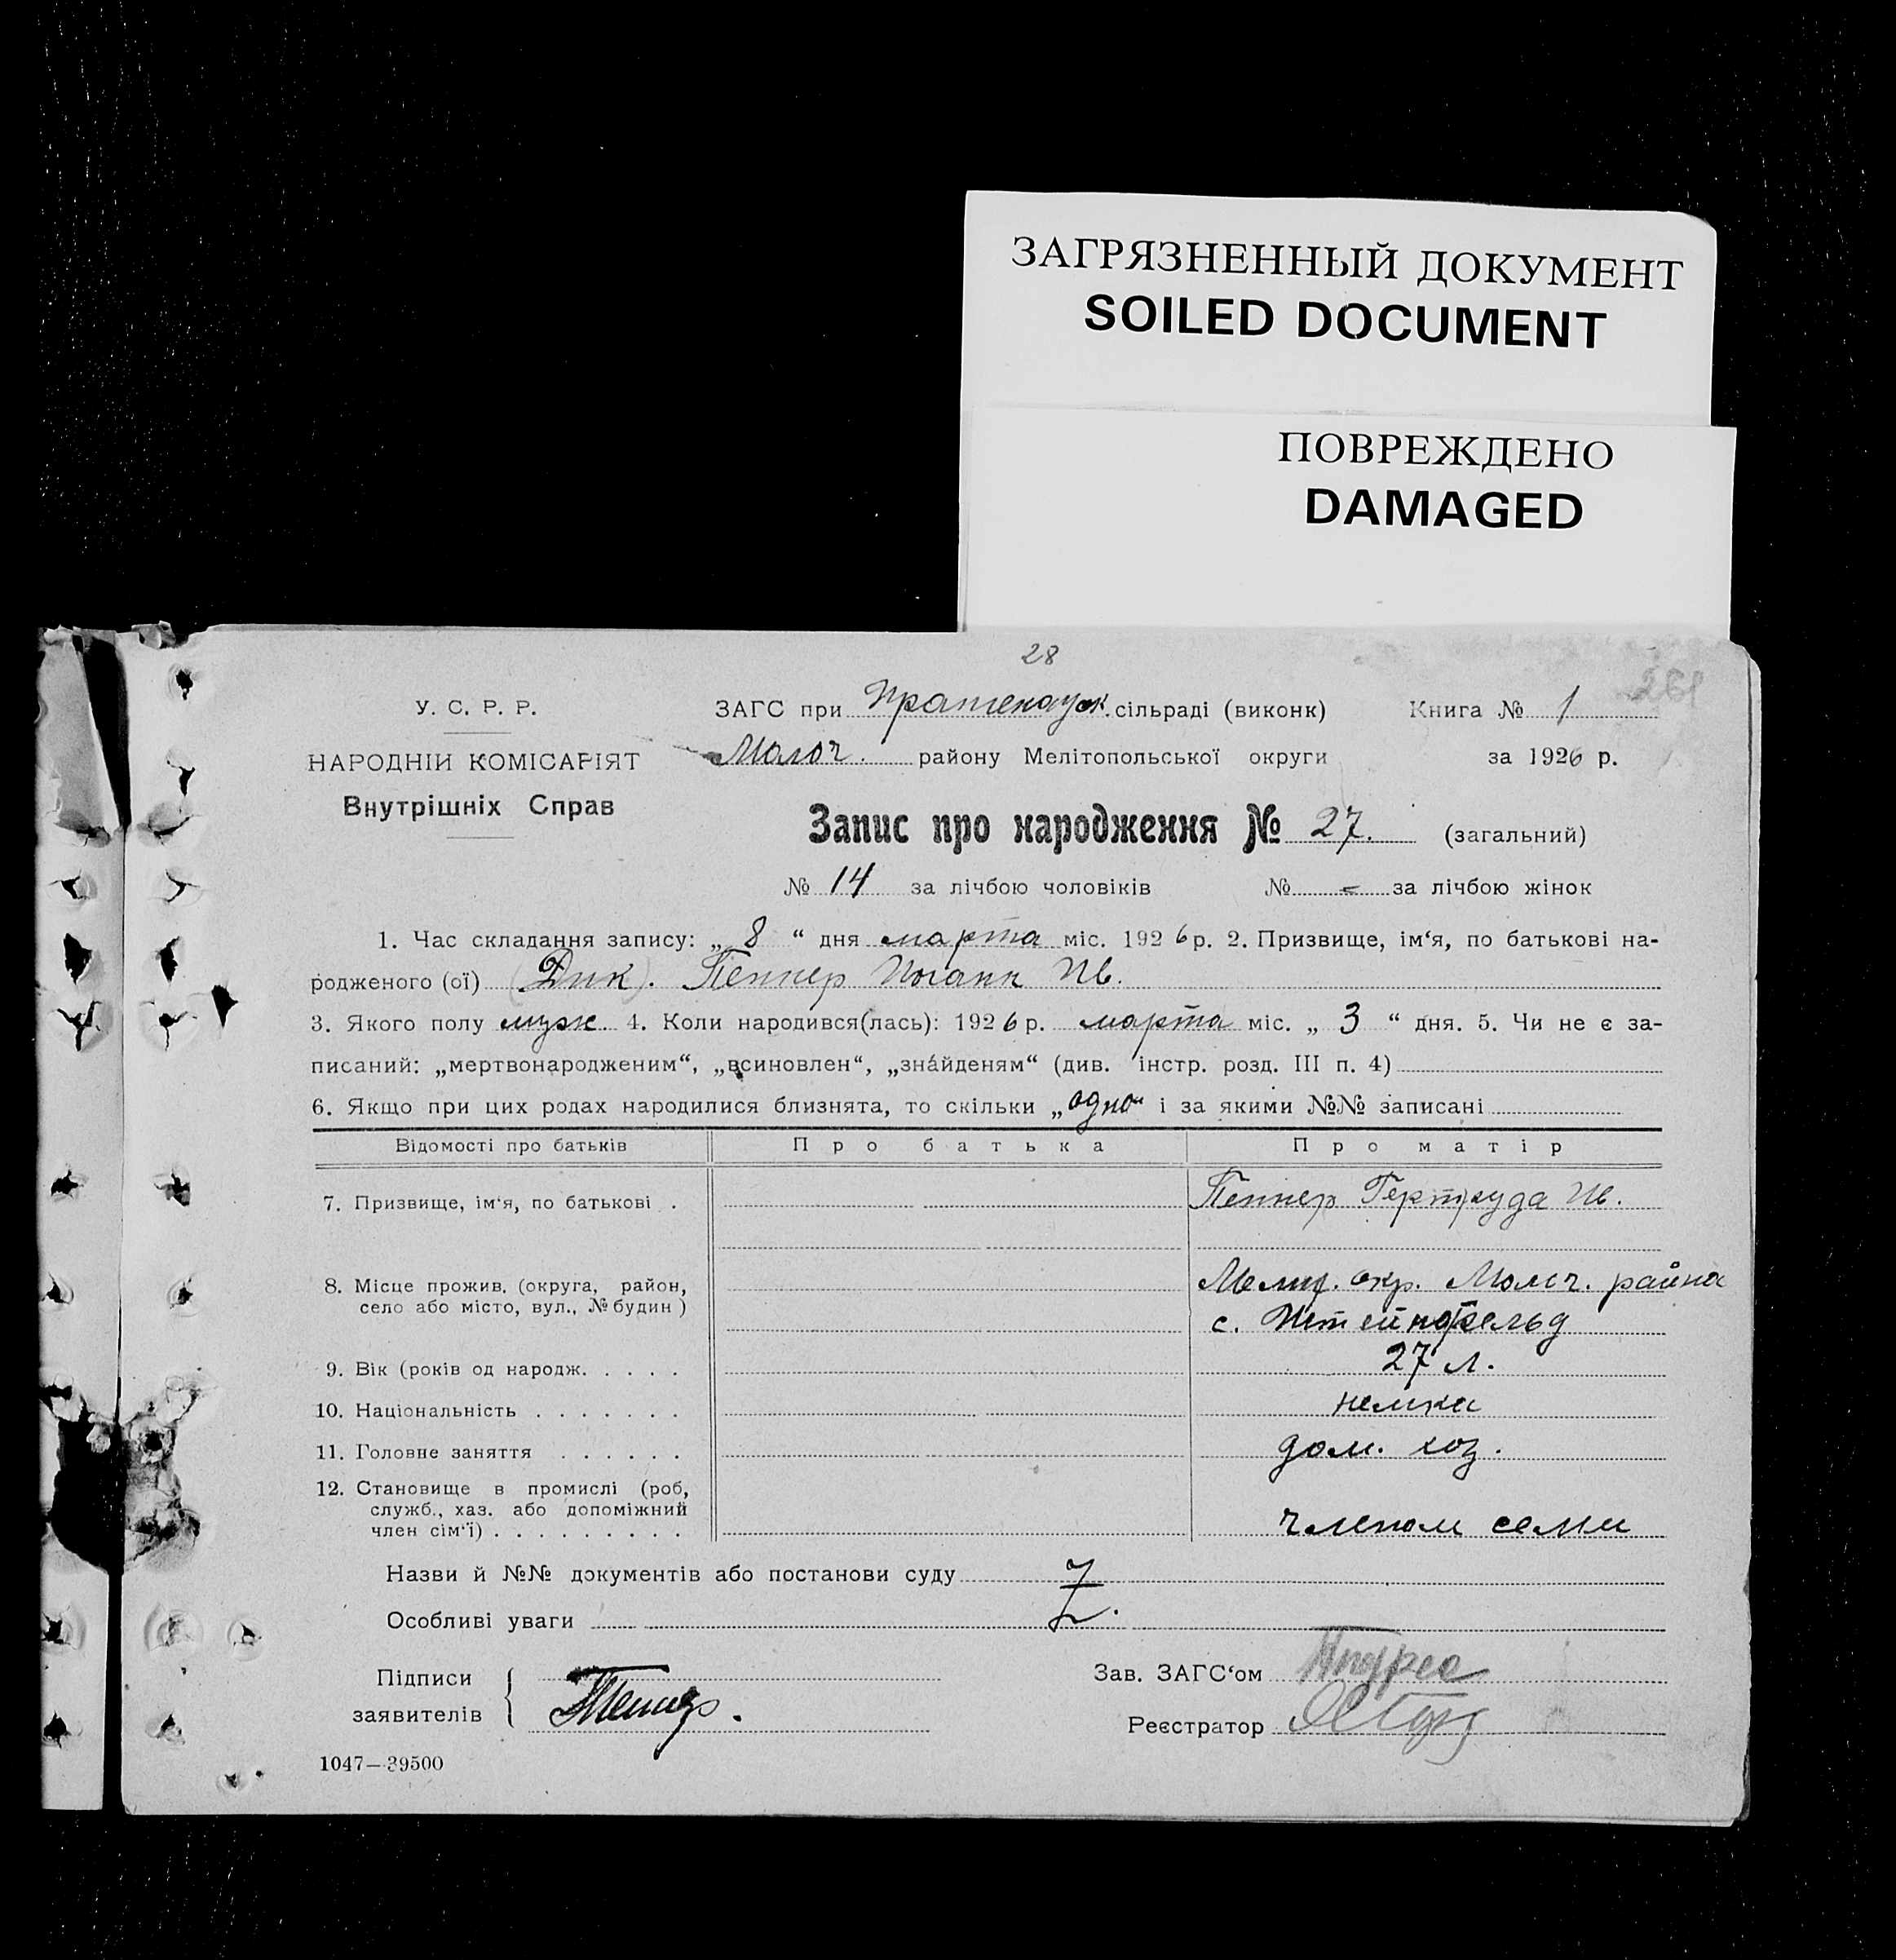 ЗАГРЯЗНЕННЫЙ ДОКУМЕНТ
SOILED DOCUMENT
ПОВРЕЖДЕНО
DAMAGED
28
261
У. С. Р. Р.
ЗАГС при Пратенауск. сільраді (виконк)
Книга № 1
НАРОДНІЙ КОМІСАРІЯТ
Молоч. району Мелітопольської округи
за 1926 р.
Внутрішніх Справ
Запис про народження № 27. (загальний)
№ 14 за лічбою чоловіків № - за лічбою жінок
1. Час складання запису: „ 8 “ дня марта міс. 1926 р. 2. Призвище, ім‘я, по батькові на-
родженого (ої) (Дик). Пеннер Иоганн Ив.
3. Якого полу муж. 4. Коли народився(лась): 1926 р. марта міс. „ 3 “ дня. 5. Чи не є за-
писаний: „мертвонародженим“, „всиновлен“, „знáйденям“ (див. інстр. розд. III п. 4)
6. Якщо при цих родах народилися близнята, то скільки „одно“ і за якими №№ записані
Відомості про батьків Про батька Про матір
7. Призвище, ім‘я, по батькові . Пеннер Гертруда Ив.
8. Місце прожив. (округа, район, Мелит. окр. Молоч. района
село або місто, вул., № будин ) с. Штейнфельд
9. Вік (років од народж. . . . . 27 л.
10. Національність . . . . . . . немка
11. Головне заняття . . . . . . дом. хоз.
12. Становище в промислі (роб,
служб., хаз. або допоміжний
член сім‘ї) . . . . . . . . . членом семьи
Назви й №№ документів або постанови суду
Особливі уваги
Підписи
Зав. ЗАГС‘ом
заявителів Пеннер.
Реєстратор
1047—39500